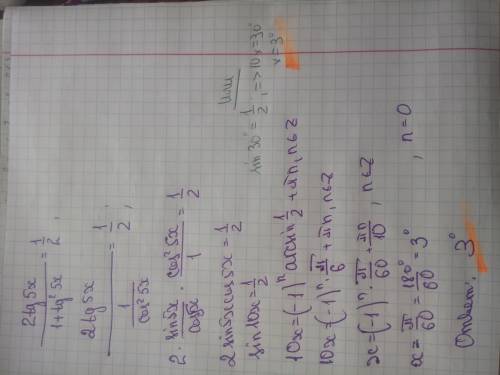 2tg5x / 1+tg²5x = 1/2,
2tg5x / (1/cos²5x) = 1/2,
2 · sin5x/cos5x · cos²5x/1 = 1/2
2 sin5x cos5x = 1/2
sin10x = 1/2
10x = (-1)ⁿ arcsin 1/2 + πn, n∈Z
10x = (-1)ⁿ · π/6 + πn, n∈Z
x = (-1)ⁿ · π/60 + πn/10, n∈Z
x = π/60 = 180°/60 = 3°, n=0
Ответ: 3°
Или
sin30° = 1/2, => 10x = 30°
x = 3°